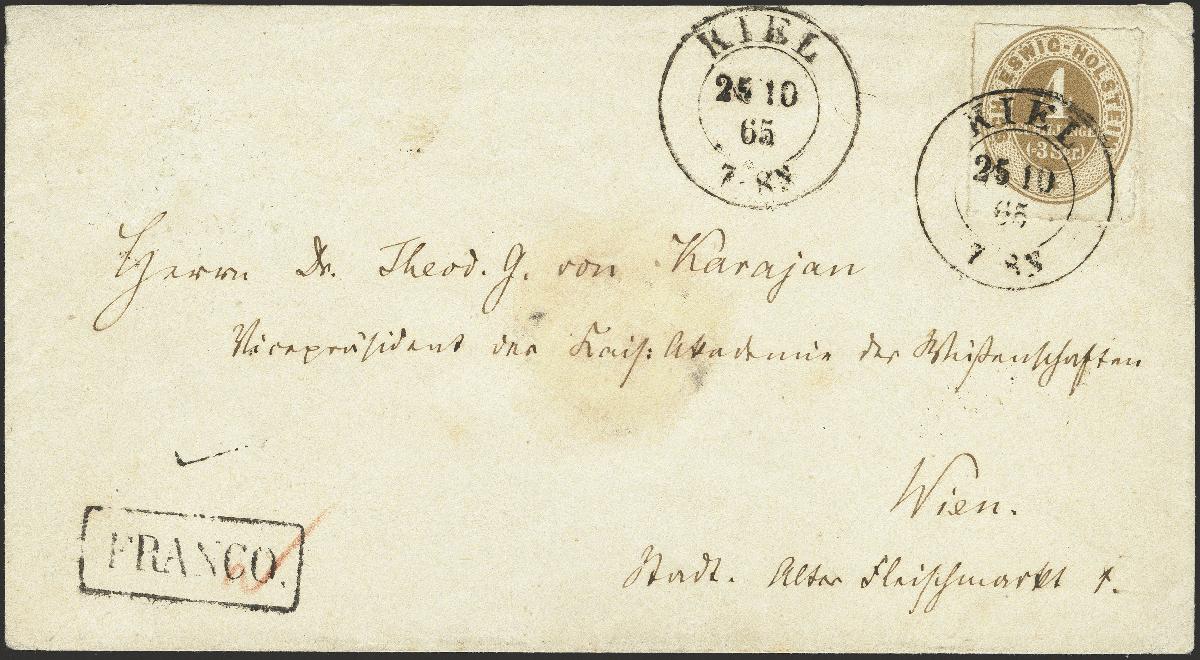 KIEL
25 10
65
7-8N
SCHLESWIG-HOLSTEIN
4
(=3 Sgr.)
KIEL
25 10
65
7-8N
Herrn Dr. Theod. G. von Karajan
Vicepräsident der Kais: Akademie der Wißenschaften
Wien.
Stadt. Alter Fleischmarkt
FRANCO.